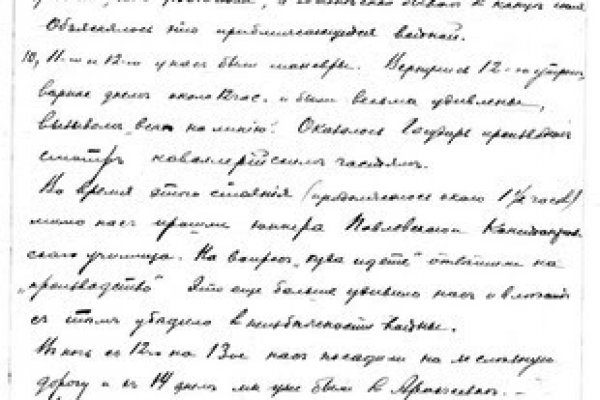 Объяснялось это приближающейся войной.
10, 11-го и 12-го у нас были маневры. Вернулись 12-го утром,
вернее днем около 12 час. и были весьма удивлены,
вызовом „всех на линию“. Оказалось Государь производил
смотр кавалерийским частям.
Во время этого стояния (продолжалось около 1½ часов)
мимо нас прошли юнкера Павловского
ского училища. На вопрос „куда идете“ ответили на
„производство“ Это еще больше удивило нас и
с тем убедило в неизбежности войны.
В ночь с 12-го на 13-ое нас посадили на железную
дорогу и в 14 днем мы уже были в